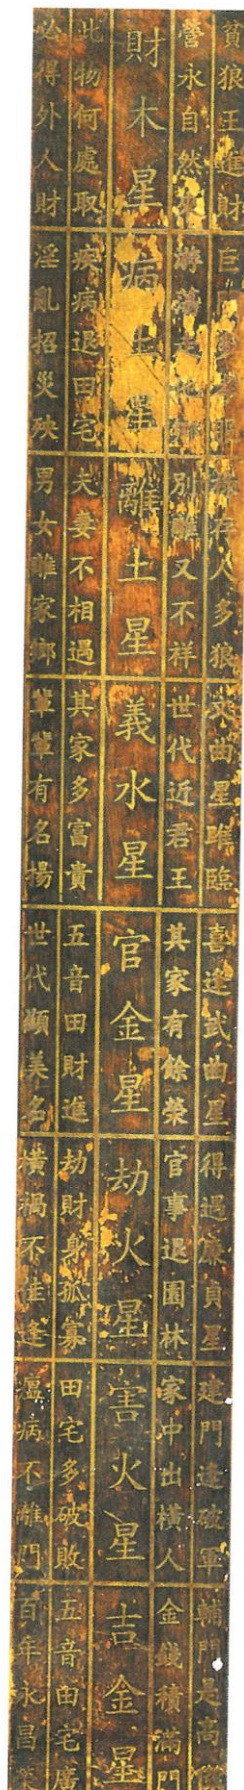 貪狼王進財
營永自然
財木星
此物何處取
必得外人財
巨門
病土星
疾病退田宅
淫亂招災殃
祿存人多狼
別離又不祥
離土星
夫妻不相過
男女離家鄉
文曲星唯臨
世代近君王
義水星
其家多富貴
輩輩有名揚
喜逢武曲星
其家有餘榮
官金星
五音田財進
世代顯美名
得過廉貞星
官事退園林
劫火星
劫財身孤寡
橫禍不佳逢
建門逢破軍
家中出橫人
害火星
田宅多破敗
瘟病不離門
輔門是高
金錢積滿門
吉金星
五音田宅廣
百年永昌